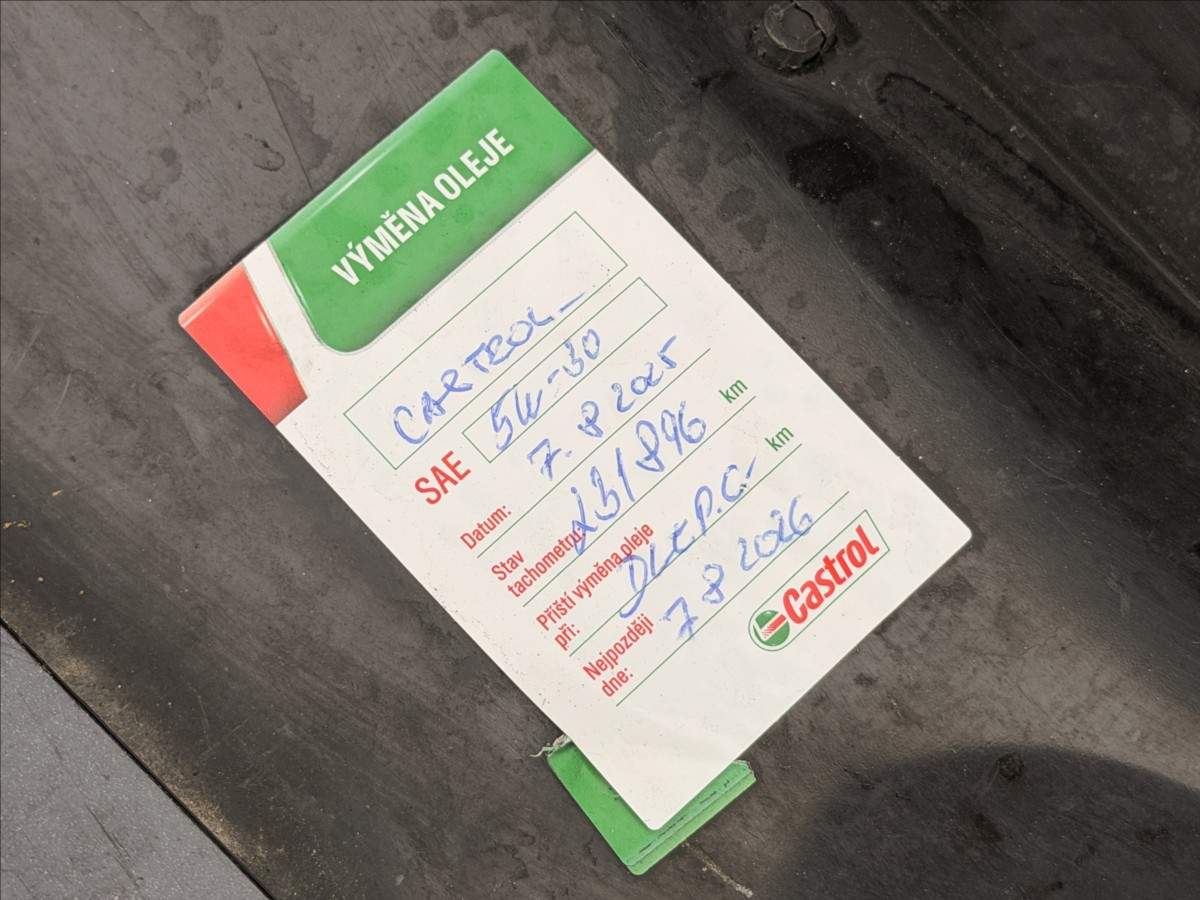 VÝMĚNA OLEJE
CASTROL
SAE 5W-30
Datum: 7. 8 2025
Stav
tachometru: 231896 km
Příští výměna oleje
při: DLE P.C. km
Nejpozději
dne: 7 8 2026
Castrol